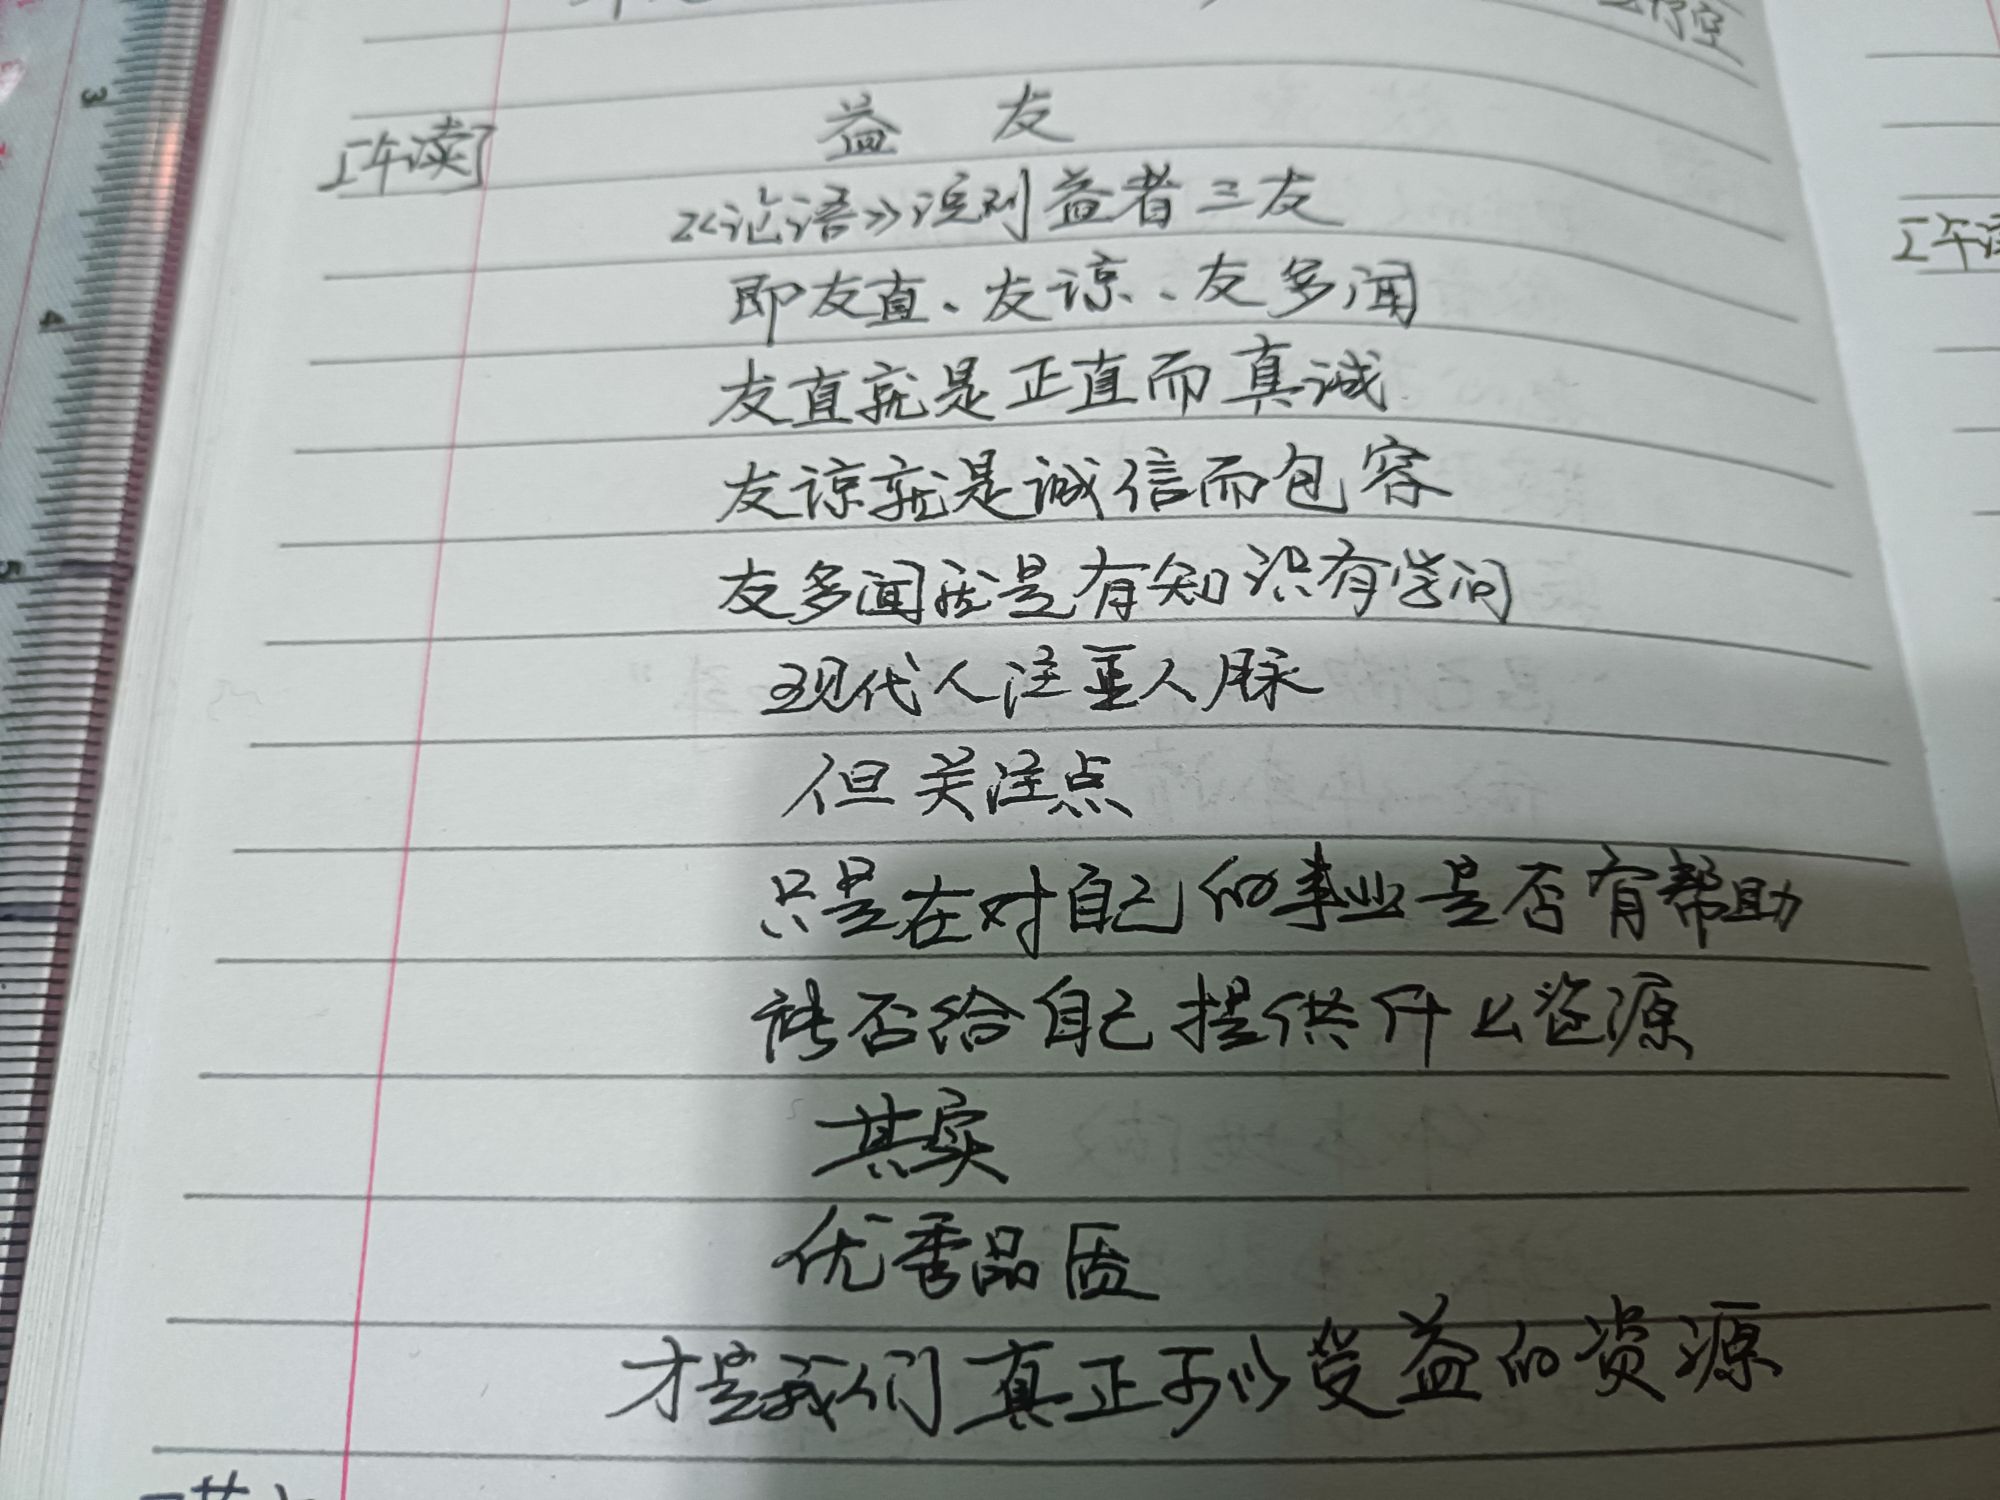 益友
正午读
《论语》说到益者三友
即友直、友谅、友多闻
友直就是正直而真诚
友谅就是诚信而包容
友多闻就是有知识有学问
现代人注重人脉
但关注点
只是在对自己的事业是否有帮助
能否给自己提供什么资源
其实
优秀品质
才是我们真正可以受益的资源
3
4
5